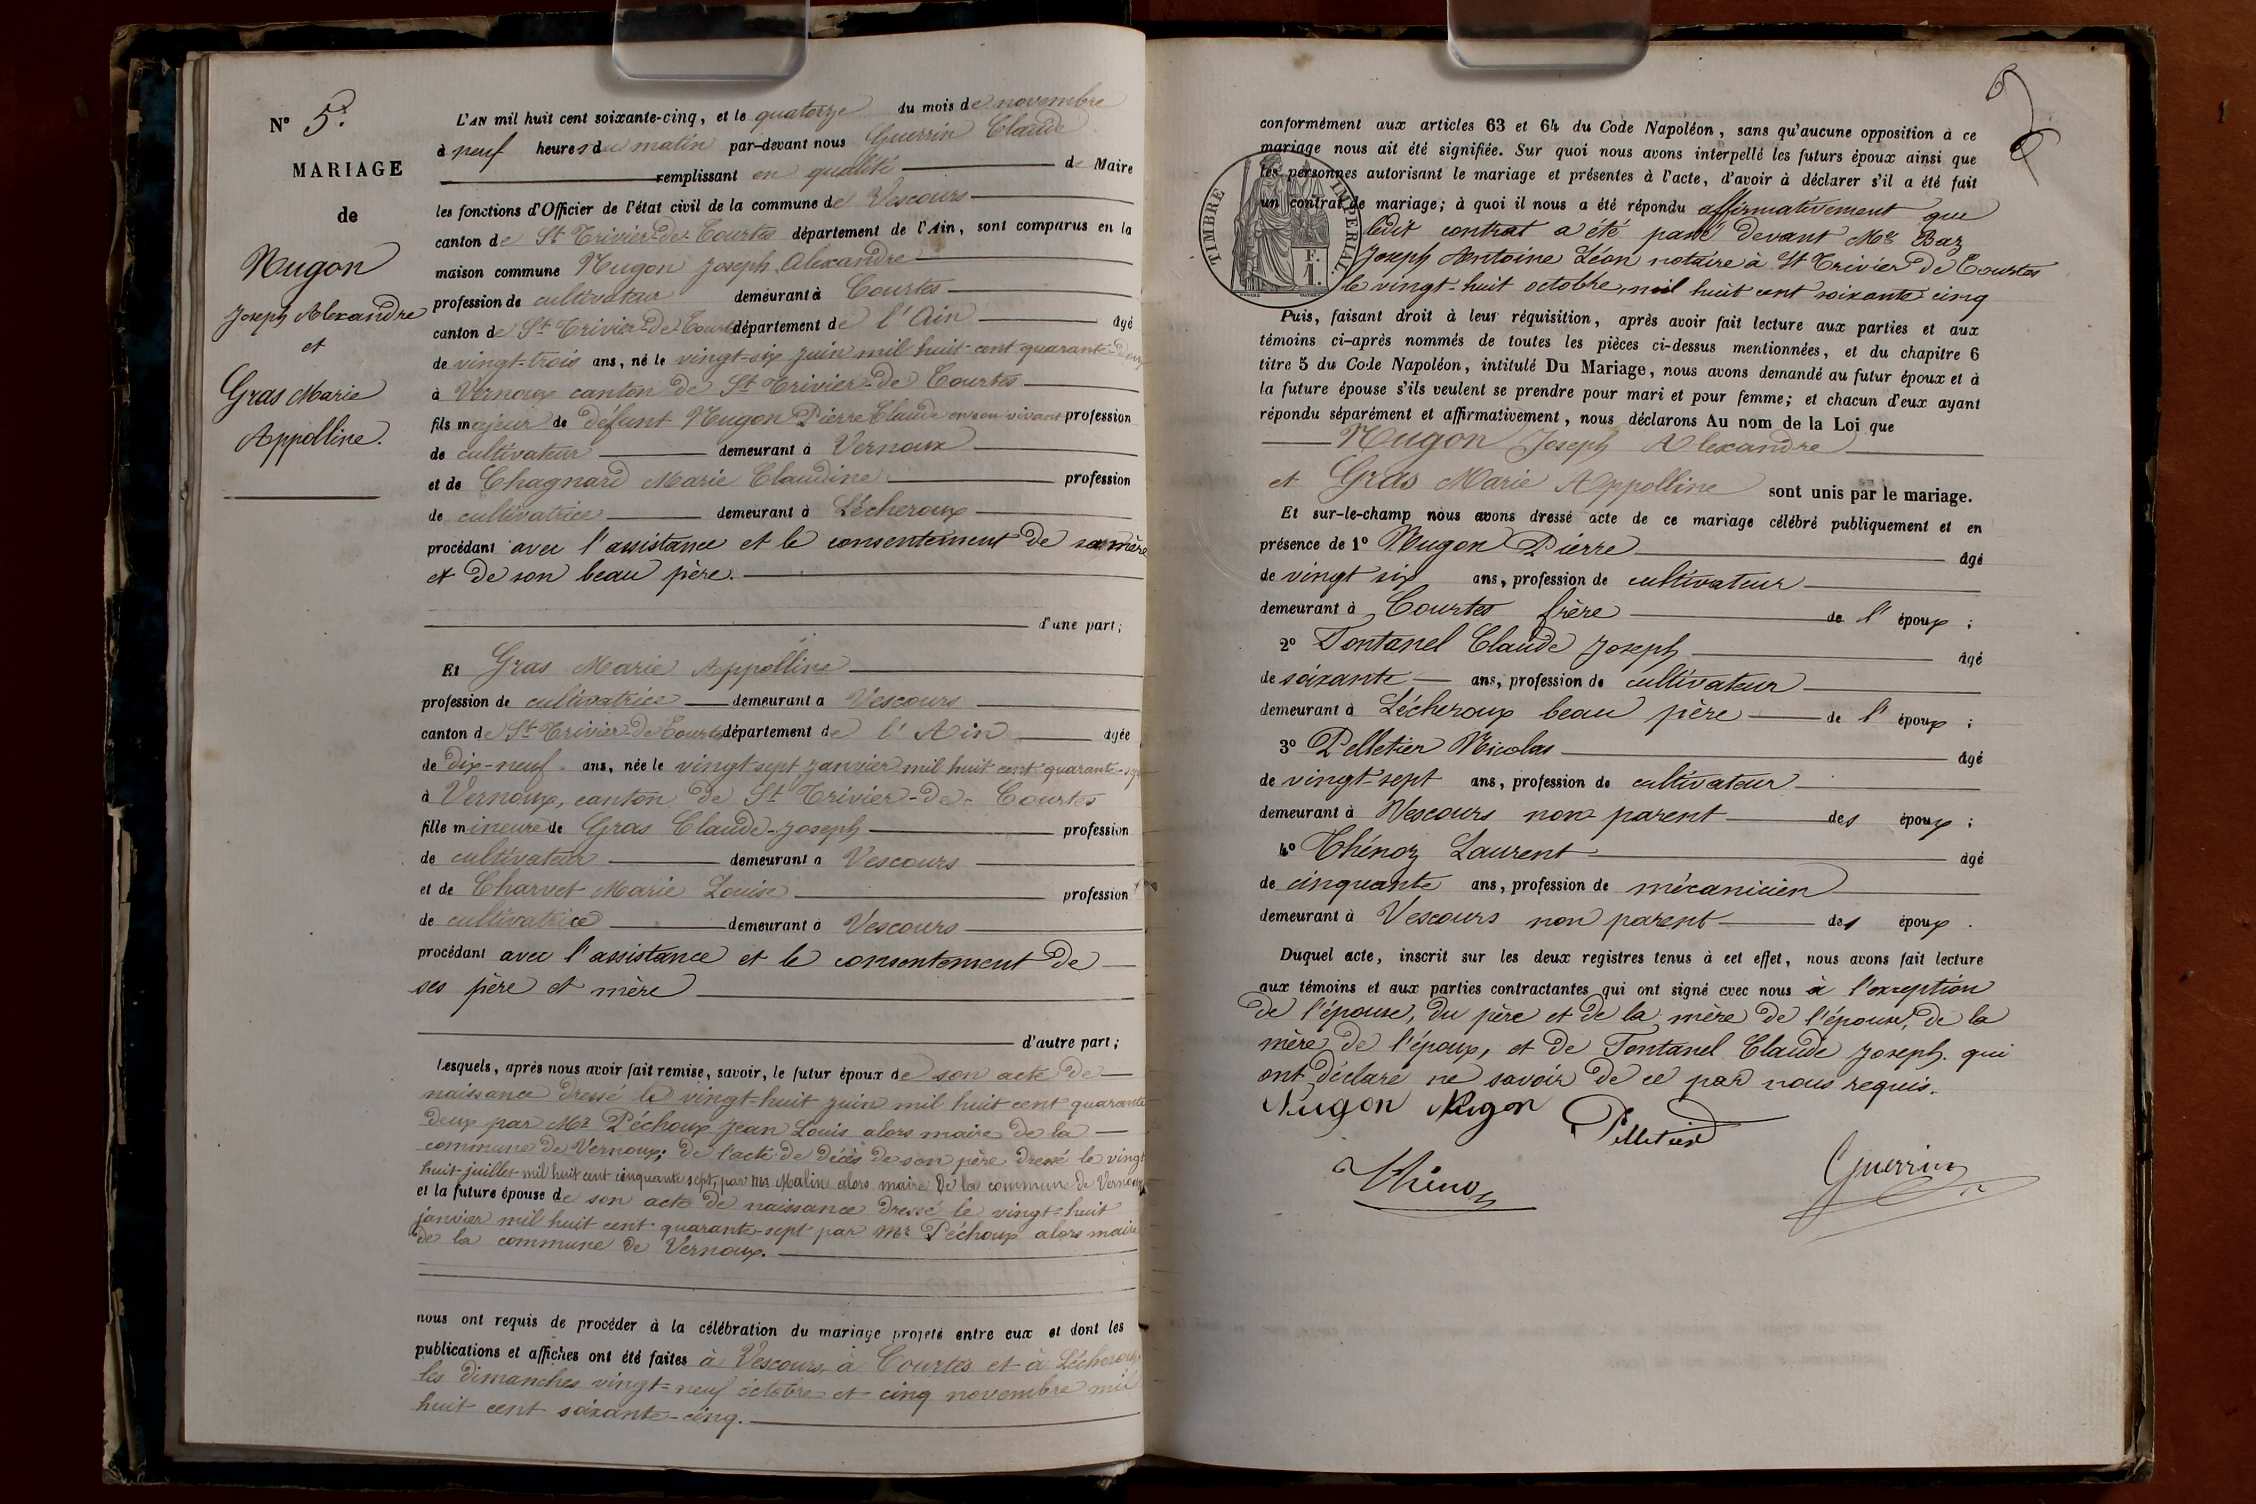 N° 5.
MARIAGE
de
Nugon
Joseph Alexandre
et
Gras Marie
Appolline.
L'AN mil huit cent soixante-cinq, et le quatorze du mois de novembre
à neuf heures du matin par-devant nous Guerrin Claude
remplissant en qualité de Maire
les fonctions d'Officier de l'état civil de la commune de Vescours
canton de St Trivier-de-Courtes département de l'Ain, sont comparus en la
maison commune Nugon Joseph Alexandre
profession de cultivateur demeurant à Courtes
canton de St Trivier-de-Courtes département de l'Ain âgé
de vingt-trois ans, né le vingt-six juin mil huit cent quarante-deux
à Vernoux canton de St Trivier-de-Courtes
fils majeur de défunt Nugon Pierre Claude en son vivant profession
de cultivateur demeurant à Vernoux
et de Chagnard Marie Claudine profession
de cultivatrice demeurant à Lécheroux
procédant avec l'assistance et le consentement de sa mère
et de son beau père.
d'une part;
Et Gras Marie Appolline
profession de cultivatrice demeurant à Vescours
canton de St Trivier-de-Courtes département de l'Ain âgée
de dix-neuf ans, née le vingt sept janvier mil huit cent quarante-sept
à Vernoux, canton de St Trivier-de-Courtes
fille mineure de Gras Claude-Joseph profession
de cultivateur demeurant à Vescours
et de Charvet Marie Louise profession
de cultivatrice demeurant à Vescours
procédant avec l'assistance et le consentement de
ses père et mère
d'autre part;
Lesquels, après nous avoir fait remise, savoir, le futur époux de son acte de
naissance dressé le vingt-huit juin mil huit cent quarante
deux par Mr Péchoux Jean Louis alors maire de la
commune de Vernoux; de l'acte de décès de son père dressé le vingt
huit juillet mil huit cent cinquante sept, par Mr Malin alors maire de la commune de Vernoux
et la future épouse de son acte de naissance dressé le vingt-huit
janvier mil huit cent quarante-sept par Mr Péchoux alors maire
de la commune de Vernoux.
nous ont requis de procéder à la célébration du mariage projeté entre eux et dont les
publications et affiches ont été faites à Vescours, à Courtes et à Lécheroux
les dimanches vingt-neuf octobre et cinq novembre mil
huit cent soixante-cinq.
conformément aux articles 63 et 64 du Code Napoléon, sans qu'aucune opposition à ce
mariage nous ait été signifiée. Sur quoi nous avons interpellé les futurs époux ainsi que
les personnes autorisant le mariage et présentes à l'acte, d'avoir à déclarer s'il a été fait
un contrat de mariage; à quoi il nous a été répondu affirmativement que
ledit contrat a été passé devant Me Baz
Joseph Antoine Léon notaire à St Trivier de Courtes
le vingt-huit octobre, mil huit cent soixante cinq
TIMBRE IMPERIAL
F.
1.
Puis, faisant droit à leur réquisition, après avoir fait lecture aux parties et aux
témoins ci-après nommés de toutes les pièces ci-dessus mentionnées, et du chapitre 6
titre 5 du Code Napoléon, intitulé Du Mariage, nous avons demandé au futur époux et à
la future épouse s'ils veulent se prendre pour mari et pour femme; et chacun d'eux ayant
répondu séparément et affirmativement, nous déclarons Au nom de la Loi que
Nugon Joseph Alexandre
et Gras Marie Appolline sont unis par le mariage.
Et sur-le-champ nous avons dressé acte de ce mariage célébré publiquement et en
présence de 1° Nugon Pierre âgé
de vingt six ans, profession de cultivateur
demeurant à Courtes frère de l'époux;
2° Fontanel Claude Joseph âgé
de soixante ans, profession de cultivateur
demeurant à Lécheroux beau père de l'époux;
3° Pelletier Nicolas âgé
de vingt-sept ans, profession de cultivateur
demeurant à Vescours non parent des époux;
4° Thénoz Laurent âgé
de cinquante ans, profession de mécanicien
demeurant à Vescours non parent des époux.
Duquel acte, inscrit sur les deux registres tenus à cet effet, nous avons fait lecture
aux témoins et aux parties contractantes qui ont signé avec nous à l'exception
de l'épouse, du père et de la mère de l'épouse, de la
mère de l'époux, et de Fontanel Claude Joseph. qui
ont déclaré ne savoir de ce par nous requis.
Nugon Nugon Pelletier
Thénoz Guerrin